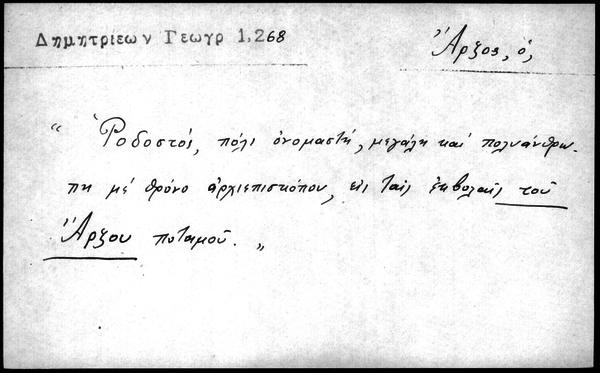 Δημητριεων Γεωγρ 1,268
Ἄρζος, ὁ,
“ Ῥοδοστόι, πόλι ὀνομαστή, μεγάλη καὶ πολυάνθρω-
πη μέ θρόνο ἀρχιεπισκόπου, εἰς ταὶς ἐκβολαὶς τοῦ
Ἄρζου ποταμοῦ. „